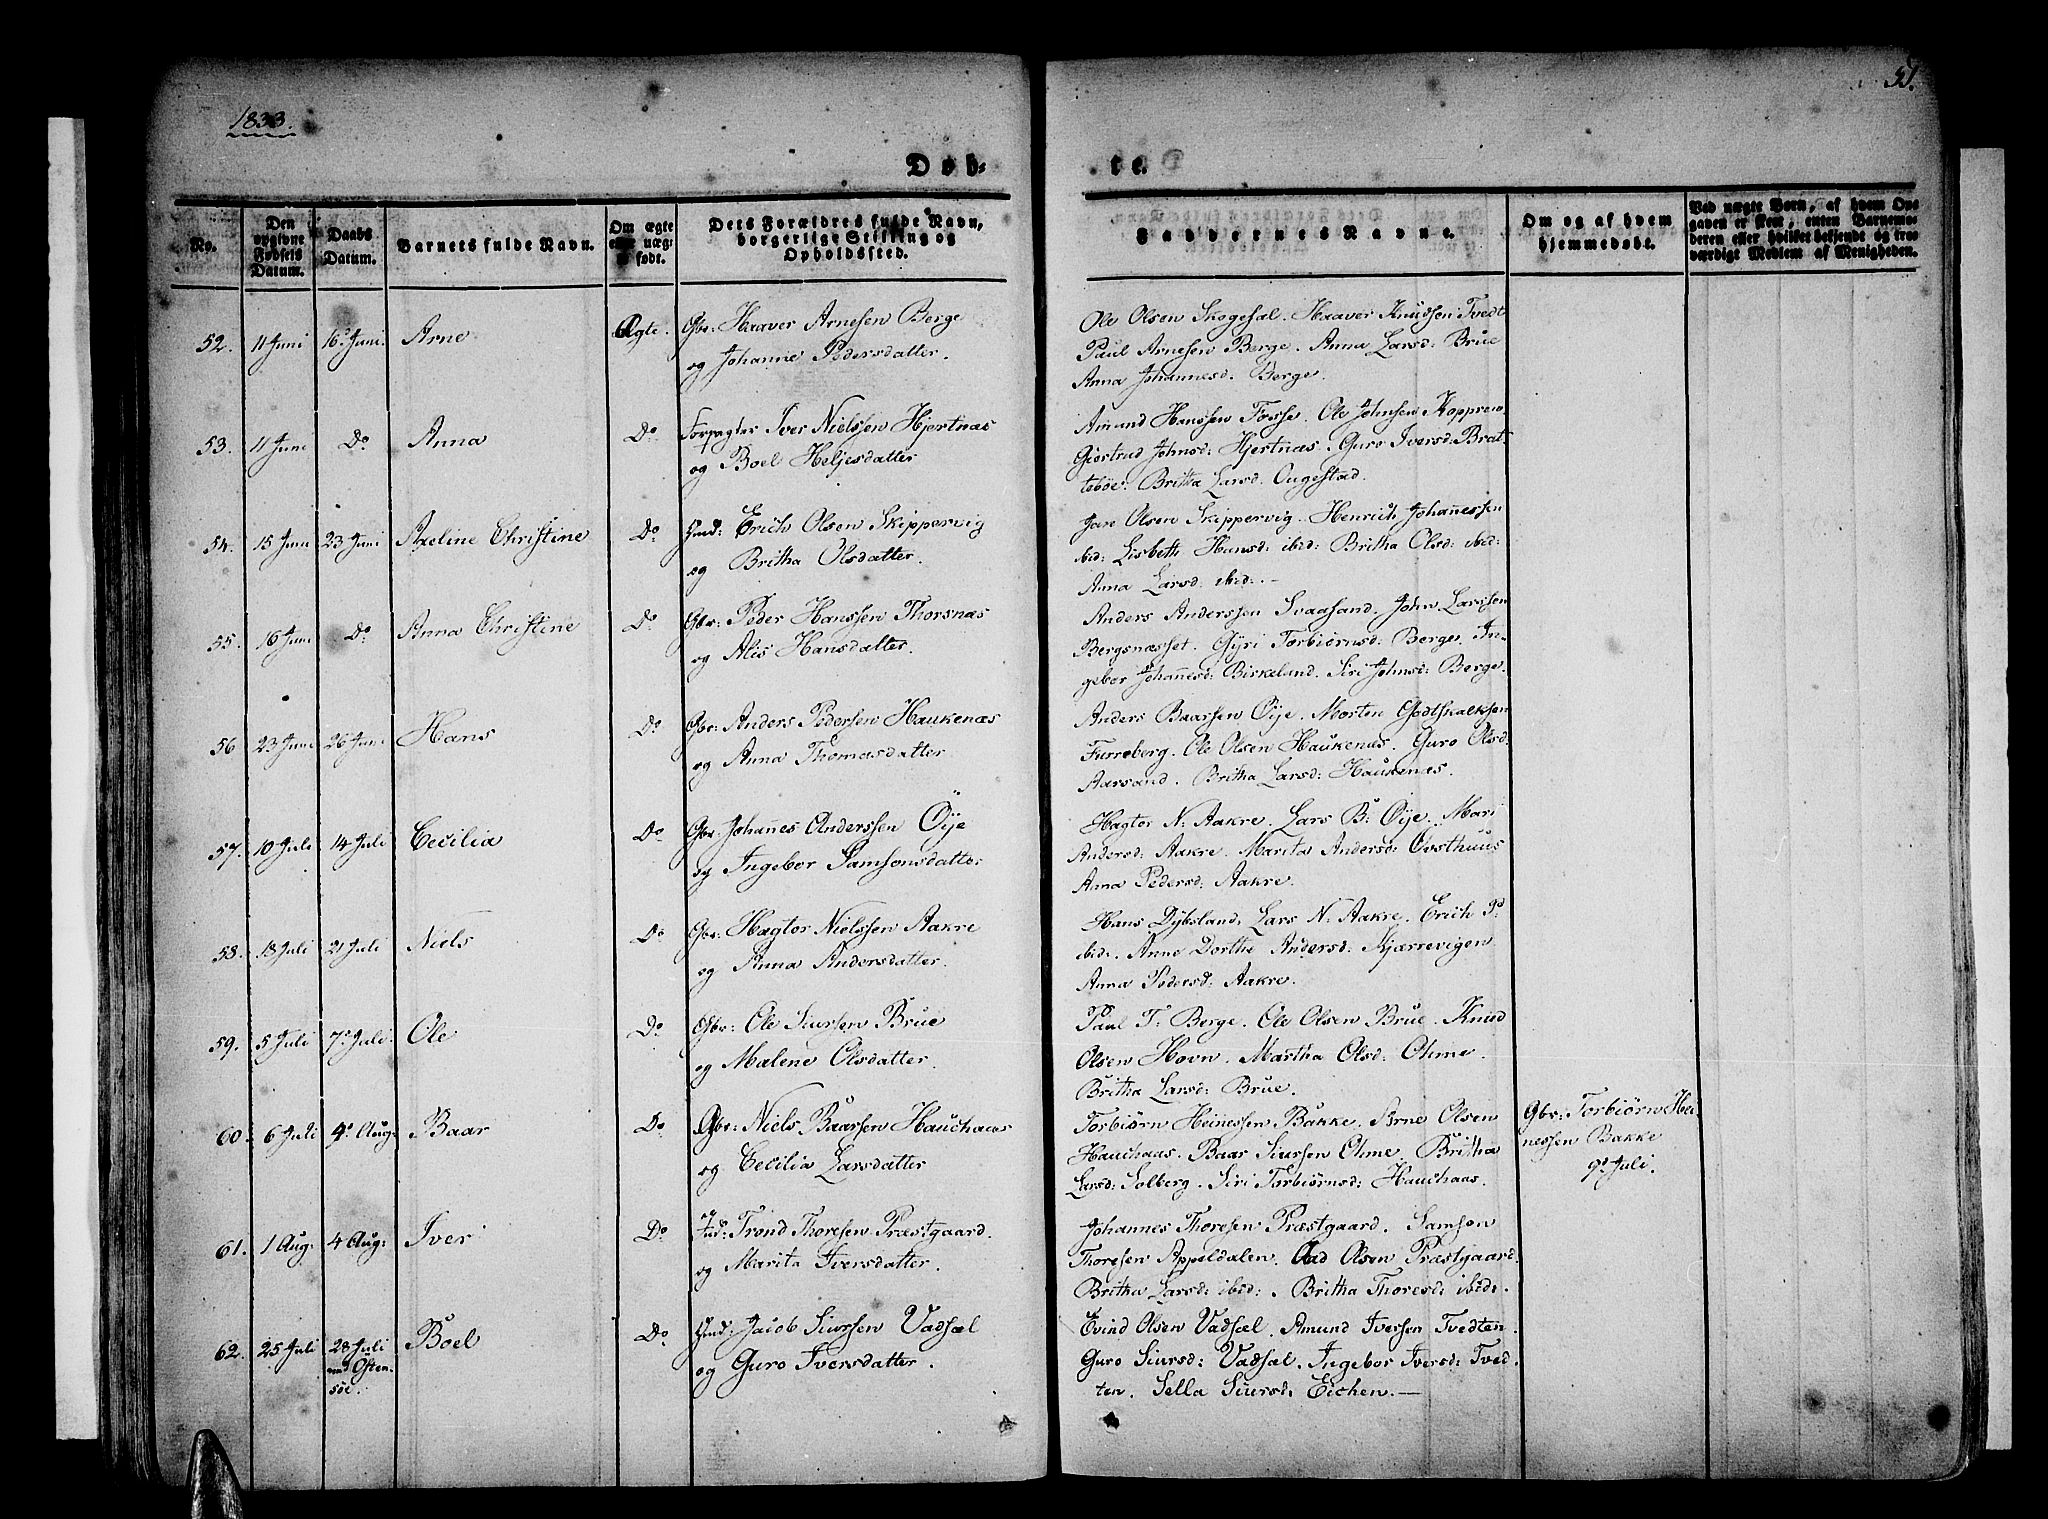 1833.
57.
Døb-
te.
No.
Den
opgivne
Fødsels
Datum.
Daabs
Datum.
Barnets fulde Navn.
Om ægte
eller uæg-
te født.
Dets Forældres fulde Navn,
borgerlige Stilling og
Opholdssted.
Faddernes Navne.
Om og af hvem
hjemmedøbt.
Ved uægte Børn, af hvem Op-
gaven er skeet, enten Barnemo-
deren eller hvilket bekjendt og tro-
værdigt Medlem af Menigheden.
52. 11 Juni 16d Juni. Arne Ægte. Gbr: Haaver Arnesen Berge
og Johanne Pedersdatter.
Ole Olsen Skogesal. Haaver Knudsen Tvedt
Paul Arnesen Berge. Anna Larsd: Brue
Anna Johannesd: Berge.
53. 11 Juni Do Anna Do Forpagter Iver Nielssen Hjertnæs
og Boel Heljesdatter
Amund Hanssen Fosse. Ole Johnsen Kopprev.
Giertrud Johnsd: Hjertnæs. Guro Iversd: Brat-
tebøe. Britha Larsd: Ougestad.
54. 15 Juni 23 Juni Paeline Christine Do Hmd: Erich Olsen Skippervig
og Britha Olsdatter.
Jon Olsen Skippervig. Henrich Johanessen
ibid: Lisbeth Hansd: ibid: Britha Olsd: ibid:
Anna Larsd: ibid:.-
55. 16 Juni Do Anna Christine Do Gbr: Peder Hanssen Thorsnæs
og Alis Hansdatter.
Anders Anderssen Svaasand. John Larssen
Bergsnæsset. Gyri Torbiørnsd: Berge. In-
gebor Johanesd: Birkeland. Siri Johnsd: Berge.
56 23 Juni 26 Juni Hans Do Gbr: Anders Pedersen Haukenæs
og Anna Thomasdatter
Anders Baarsen Øye. Morten Godtskalksen
Furreberg. Ole Olsen Haukenæs. Guro Olsd:
Aarsand. Britha Larsd: Haukenæs.
57. 10 Juli 14 Juli Cecilia Do Gbr: Johanes Anderssen Øye
og Ingebor Samsonsdatter
Hagtor N: Aakre. Lars B: Øye. Mari
Andersd: Aakre. Marita Andersd: Øvsthuus
Anna Pedersd: Aakre.
58. 18 Juli 21 Juli Niels Do Gbr: Hagtor Nielssen Aakre
og Anna Andersdatter.
Hans Dybsland. Lars N: Aakre. Erich P:
ibid. Anne Dorthe Andersd: Kjærrevigen
Anna Pedersd: Aakre.
59. 5 Juli 7d Juli Ole Do Gbr: Ole Siursen Brue
og Malene Olsdatter.
Paul T: Berge. Ole Olsen Brue. Knud
Olsen Hovn. Martha Olsd: Ohme.
Britha Larsd: Brue.
60. 6 Juli 4d Aug: Baar Do Gbr: Niels Baarsen Hauchaas
og Cecilia Larsdatter
Torbiørn Heinessen Bakke. Arne Olsen
Hauchaas. Baar Siursen Ohme. Britha
Larsd: Solberg. Siri Torbiørnsd: Hauchaas.
Gbr: Torbiørn Hei-
nessen Bakke
9d Juli.
61. 1 Aug. 4 Aug: Iver Do Ind: Trond Thoresen Præstgaard.
og Marita Iversdatter.
Johannes Thoresen Præstgaard. Samson
Thoresen Appeldalen. Aad Olsen Præstgaard.
Britha Larsd: ibid:. Britha Thoresd: ibid:.
62. 25 Juli 28 Juli
ved Østen-
søe. Boel Do Hmd: Jacob Siursen Vadsæl
og Guro Iversdatter.
Evind Olsen Vadsæl. Amund Iversen Tvedten.
Guro Siursd: Vadsæl. Ingebor Iversd: Tved-
ten. Sella Siursd: Eichen.—